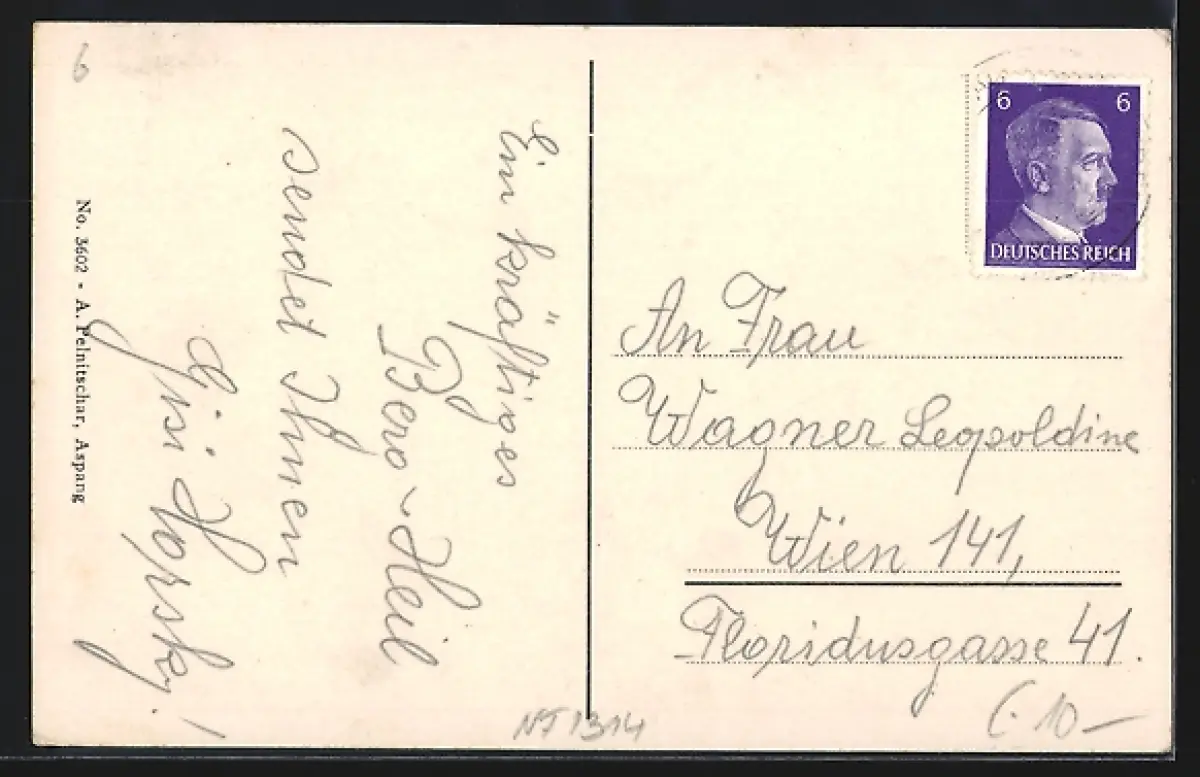 6
Ein kräftiges
Berg-Heil
sendet Ihnen
Gisi Horsky!
No. 3602 - A. Pelnitschar, Aspang
6 6
DEUTSCHES REICH
An Frau
Wagner Leopoldine
Wien 141,
Floridusgasse 41.
NT1314
10-